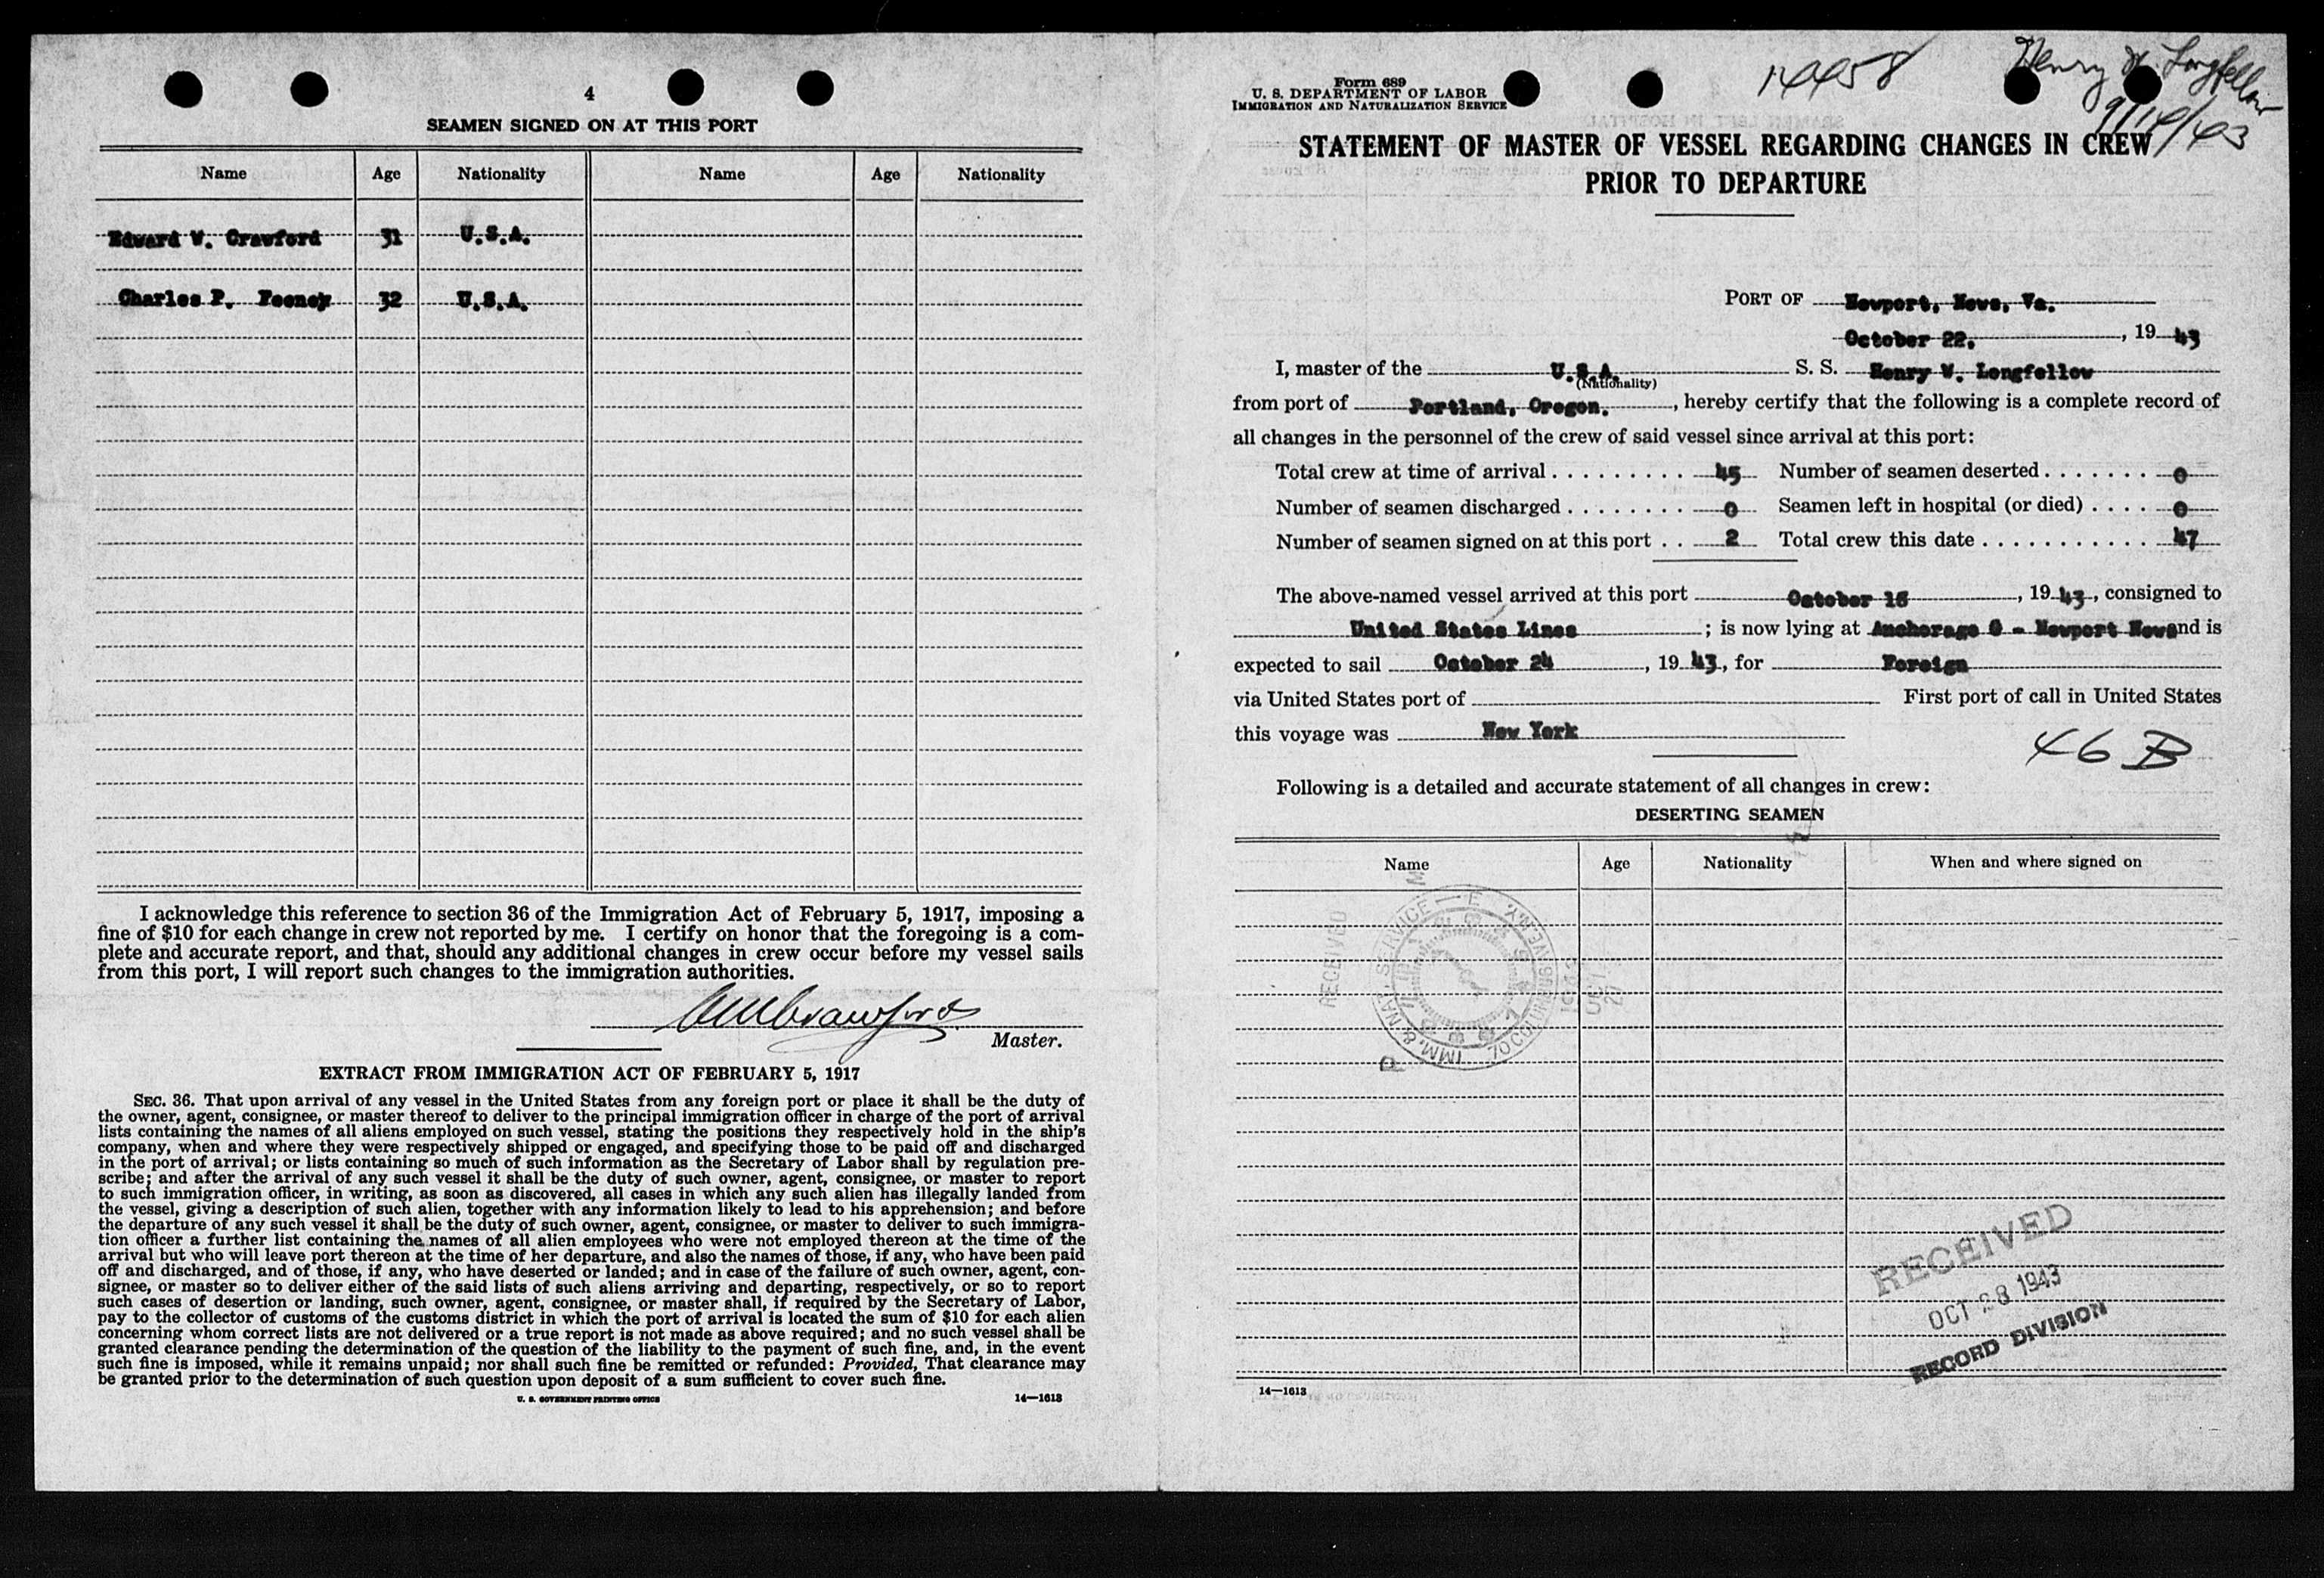 4
SEAMEN SIGNED ON AT THIS PORT
Name Age Nationality Name Age Nationality
Edward W. Crawford 31 U.S.A.
Charles P. Feeney 32 U.S.A.
I acknowledge this reference to section 36 of the Immigration Act of February 5, 1917, imposing a
fine of $10 for each change in crew not reported by me. I certify on honor that the foregoing is a com-
plete and accurate report, and that, should any additional changes in crew occur before my vessel sails
from this port, I will report such changes to the immigration authorities.
Crawford
Master.
EXTRACT FROM IMMIGRATION ACT OF FEBRUARY 5, 1917
SEC. 36. That upon arrival of any vessel in the United States from any foreign port or place it shall be the duty of
the owner, agent, consignee, or master thereof to deliver to the principal immigration officer in charge of the port of arrival
lists containing the names of all aliens employed on such vessel, stating the positions they respectively hold in the ship's
company, when and where they were respectively shipped or engaged, and specifying those to be paid off and discharged
in the port of arrival; or lists containing so much of such information as the Secretary of Labor shall by regulation pre-
scribe; and after the arrival of any such vessel it shall be the duty of such owner, agent, consignee, or master to report
to such immigration officer, in writing, as soon as discovered, all cases in which any such alien has illegally landed from
the vessel, giving a description of such alien, together with any information likely to lead to his apprehension; and before
the departure of any such vessel it shall be the duty of such owner, agent, consignee, or master to deliver to such immigra-
tion officer a further list containing the names of all alien employees who were not employed thereon at the time of the
arrival but who will leave port thereon at the time of her departure, and also the names of those, if any, who have been paid
off and discharged, and of those, if any, who have deserted or landed; and in case of the failure of such owner, agent, con-
signee, or master so to deliver either of the said lists of such aliens arriving and departing, respectively, or so to report
such cases of desertion or landing, such owner, agent, consignee, or master shall, if required by the Secretary of Labor,
pay to the collector of customs of the customs district in which the port of arrival is located the sum of $10 for each alien
concerning whom correct lists are not delivered or a true report is not made as above required; and no such vessel shall be
granted clearance pending the determination of the question of the liability to the payment of such fine, and, in the event
such fine is imposed, while it remains unpaid; nor shall such fine be remitted or refunded: Provided, That clearance may
be granted prior to the determination of such question upon deposit of a sum sufficient to cover such fine.
U. S. GOVERNMENT PRINTING OFFICE 14—1613
Form 689
U. S. DEPARTMENT OF LABOR
IMMIGRATION AND NATURALIZATION SERVICE
Henry W. Longfellow
STATEMENT OF MASTER OF VESSEL REGARDING CHANGES IN CREW
PRIOR TO DEPARTURE
PORT OF Newport, News, Va.
October 22, , 19 43
I, master of the U.S.A. S. S. Henry W. Longfellow
(Nationality)
from port of Portland, Oregon. , hereby certify that the following is a complete record of
all changes in the personnel of the crew of said vessel since arrival at this port:
Total crew at time of arrival 45 Number of seamen deserted 0
Number of seamen discharged 0 Seamen left in hospital (or died) 0
Number of seamen signed on at this port 2 Total crew this date 47
The above-named vessel arrived at this port October 16 , 19 43 , consigned to
United States Lines ; is now lying at Anchorage G - Newport News and is
expected to sail October 24 , 19 43 , for Foreign
via United States port of First port of call in United States
this voyage was New York
46 B
Following is a detailed and accurate statement of all changes in crew:
DESERTING SEAMEN
Name Age Nationality When and where signed on
RECEIVED
IMM. & NAT. SERVICE
RECEIVED
OCT 28 1943
RECORD DIVISION
14—1613